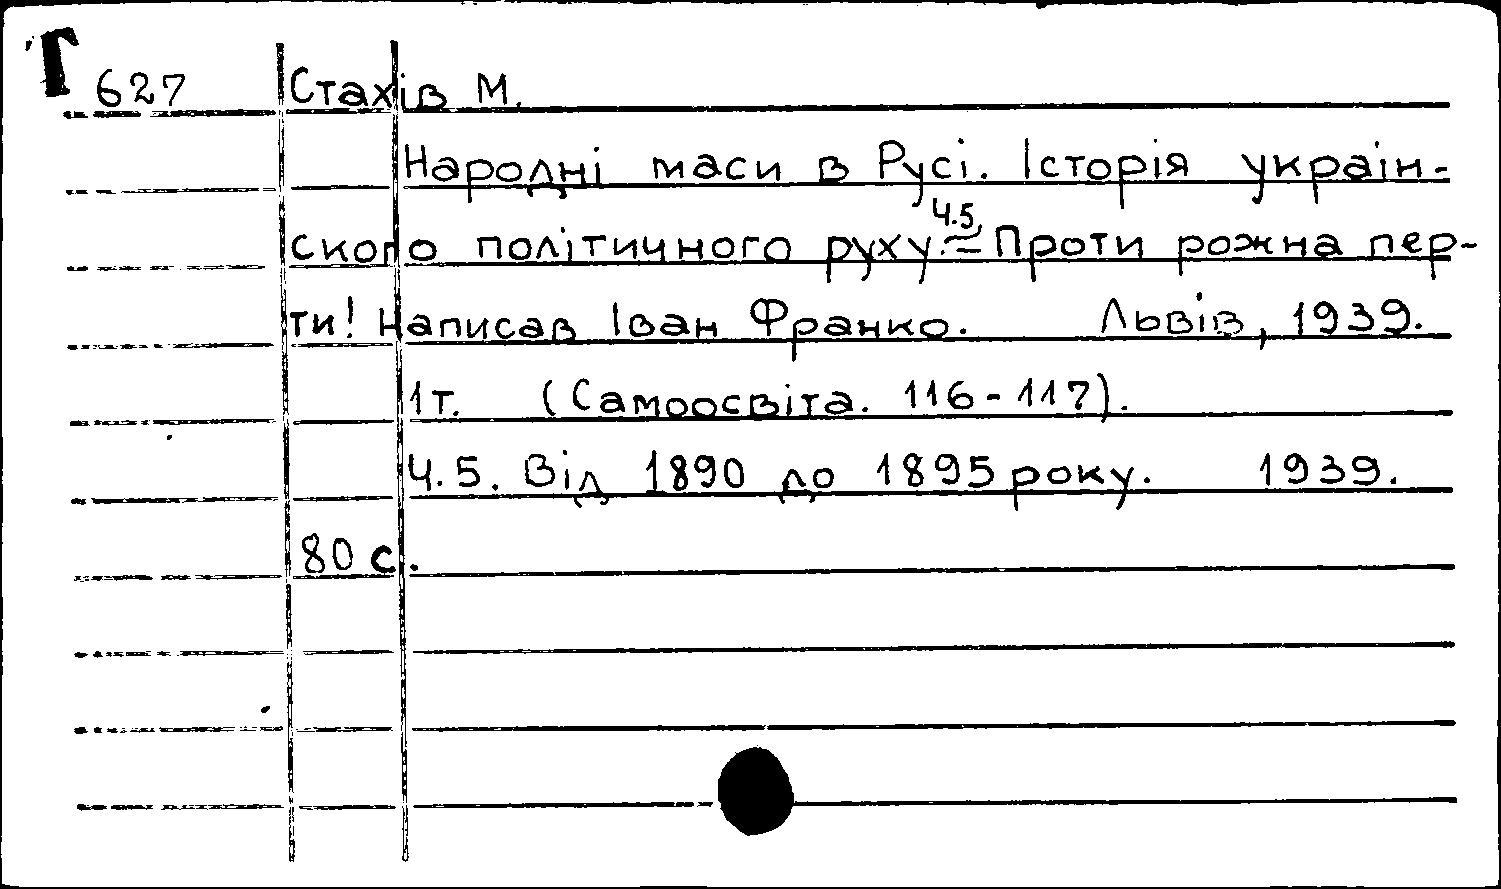 Т 627 Стахів М.
Народні маси в Русі. Історія украін-
ского політичного руху. Ч.5 = Проти рожна пер-
ти! Написав Іван Франко. Львів, 1939.
1т. (Самоосвіта. 116-117).
Ч.5. Від 1890 до 1895 року. 1939.
80 с.